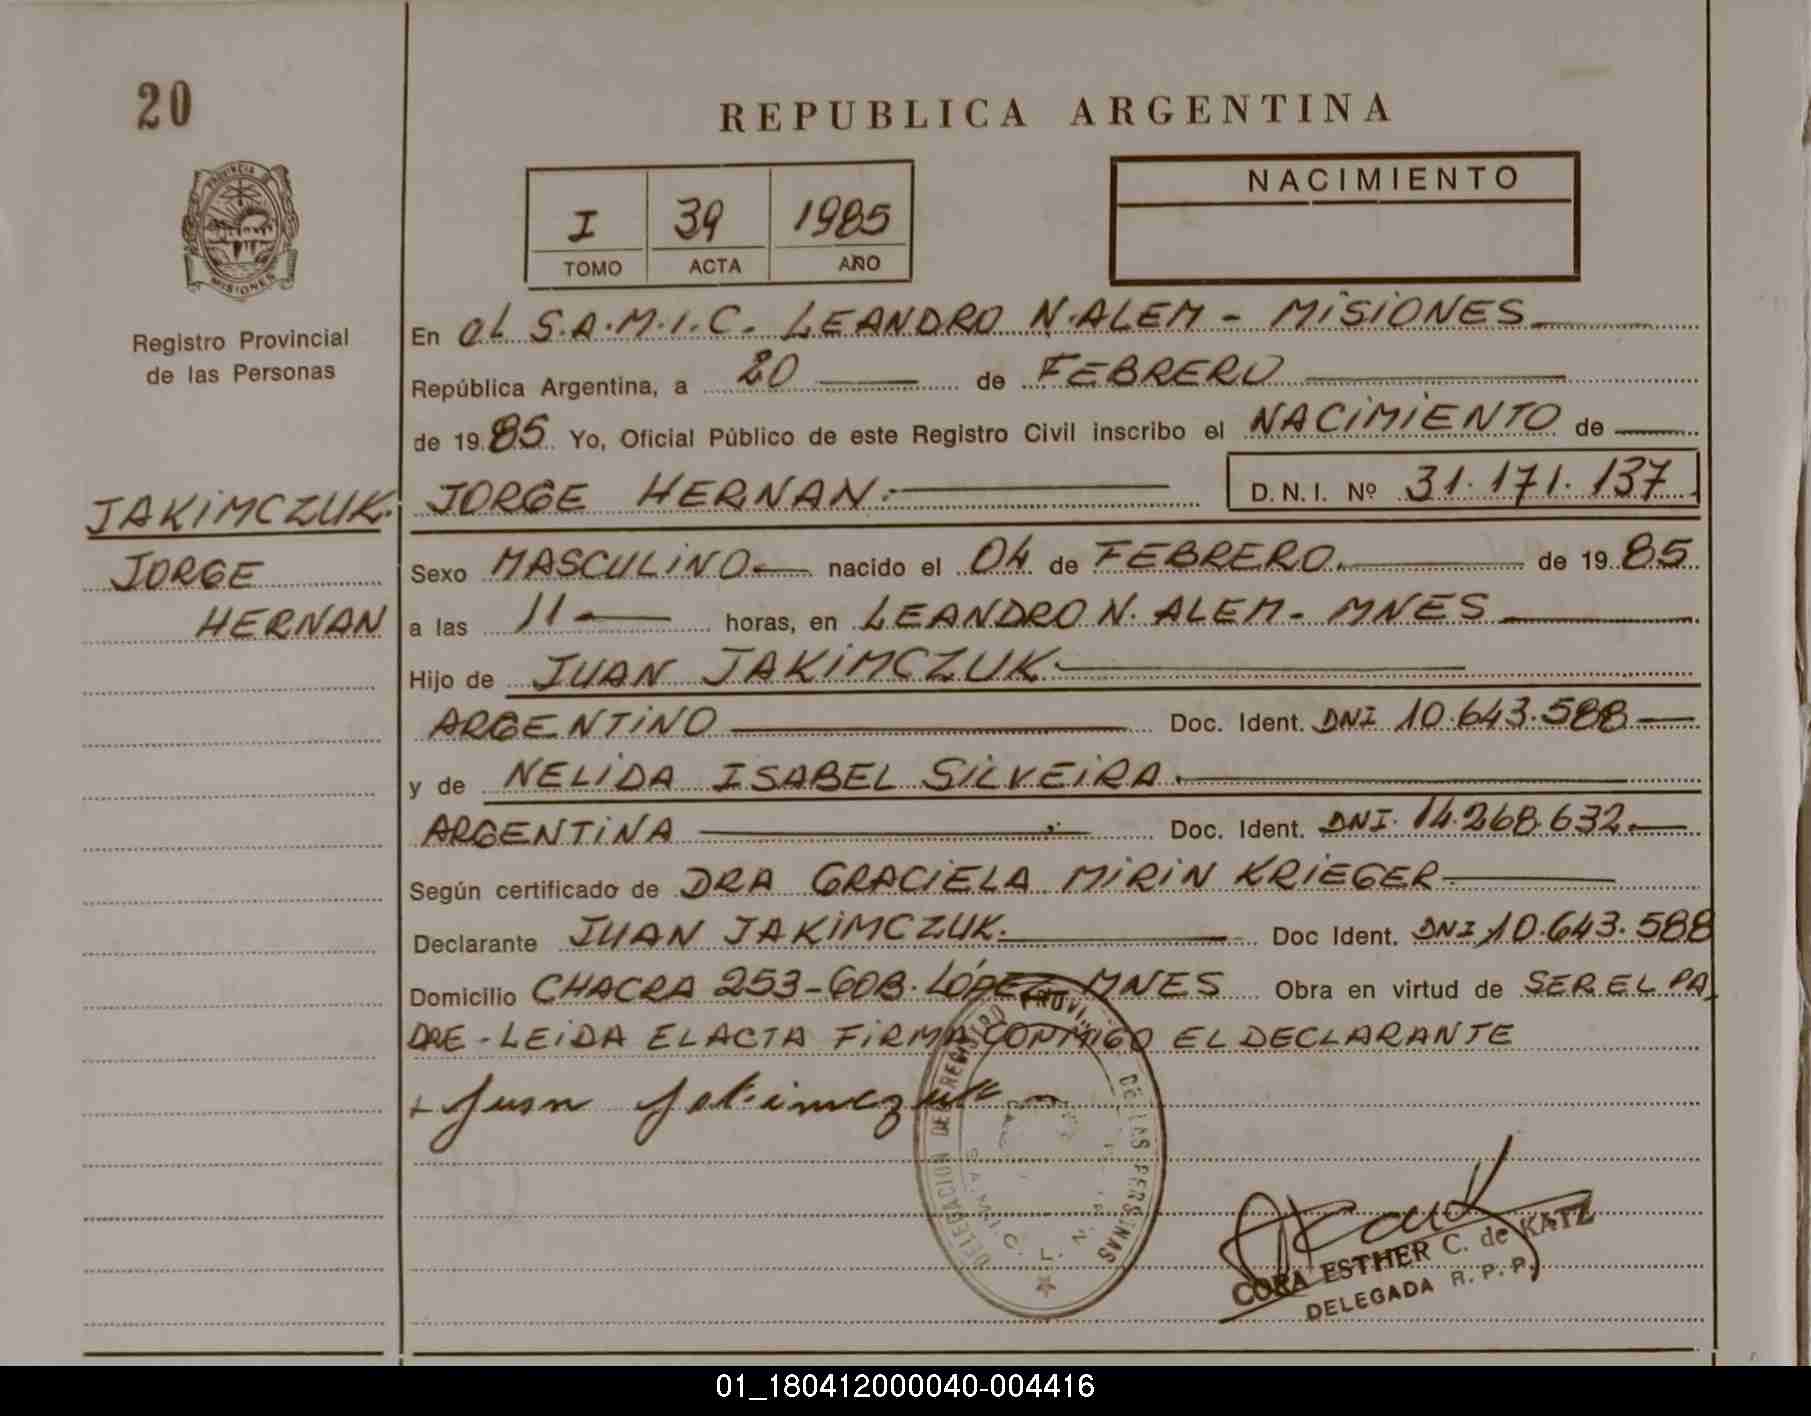 20
REPUBLICA ARGENTINA
PROVINCIA DE
MISIONES
Registro Provincial
de las Personas
NACIMIENTO
I 39 1985
TOMO ACTA AÑO
En el S.A.M.I.C. LEANDRO N. ALEM - MISIONES
República Argentina, a 20 de FEBRERO
de 1985 Yo, Oficial Público de este Registro Civil inscribo el NACIMIENTO de
JAKIMCZUK.
JORGE
HERNAN
JORGE HERNAN.
D.N.I. Nº 31.171.137
Sexo MASCULINO nacido el 04 de FEBRERO. de 1985
a las 11 horas, en LEANDRO N. ALEM - MNES
Hijo de JUAN JAKIMCZUK.
ARGENTINO Doc. Ident. DNI 10.643.588
y de NELIDA ISABEL SILVEIRA.
ARGENTINA Doc. Ident. DNI. 14.268.632.
Según certificado de DRA GRACIELA MIRIN KRIEGER
Declarante JUAN JAKIMCZUK. Doc Ident. DNI 10.643.588
Domicilio CHACRA 253-GOB. LÓPEZ MNES Obra en virtud de SER EL PA
DRE - LEIDA EL ACTA FIRMA CONMIGO EL DECLARANTE
Juan Jakimczuk
DELEGACION DEL REGISTRO PROV. DE LAS PERSONAS
S.A.M.I.C. L. N.
CORA ESTHER C. de KATZ
DELEGADA R.P.P.
01_180412000040-004416